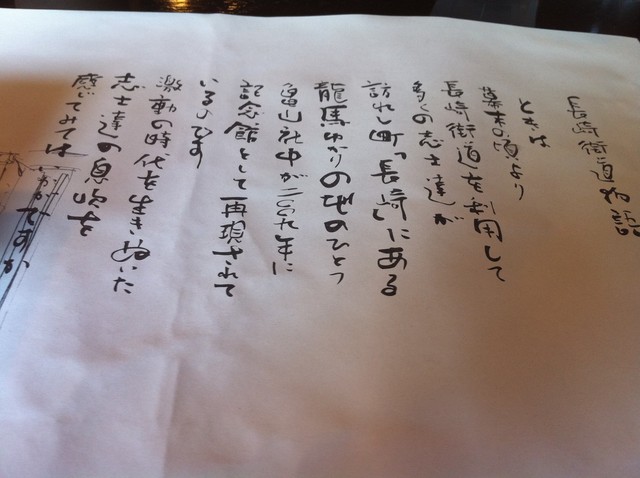 長崎街道物語
ときは
幕末の頃より
長崎街道を利用して
多くの志士達が
訪れし町「長崎」にある
龍馬ゆかりの地のひとつ
亀山社中が二〇〇九年に
記念館として再現されて
いるのです
激動の時代を生きぬいた
志士達の息吹を
感じてみてはいかがですか